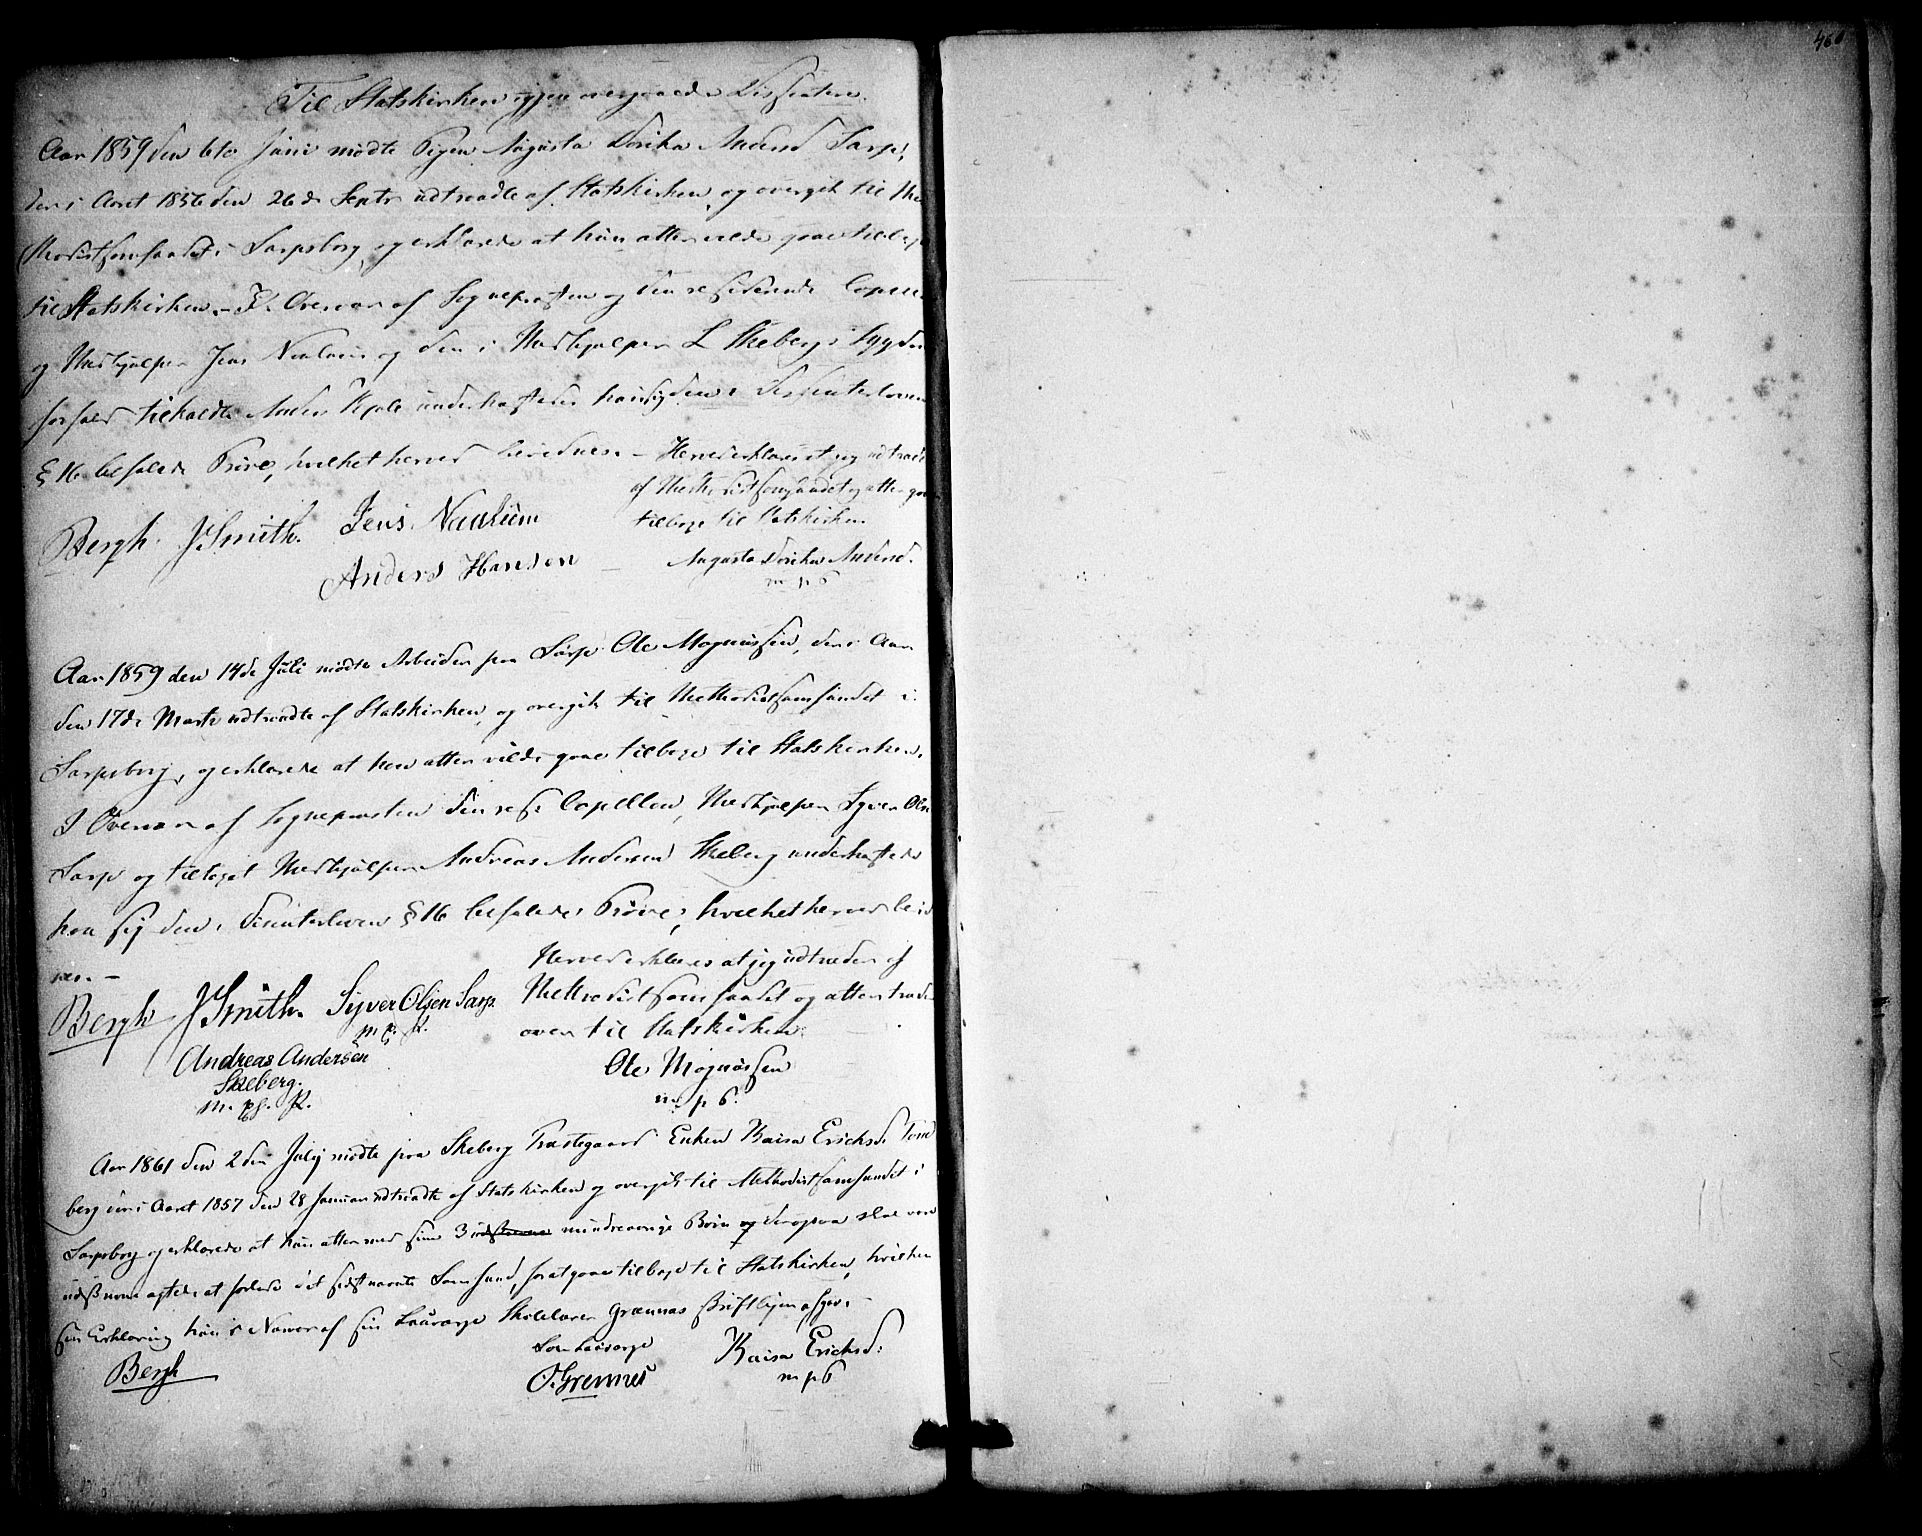 460
Til Statskirken igjen overgaaede Dissentere.
Aar 1859 den 6te Juni mødte Pigen Augusta Dorthea Andersd Sarp,
der i Aaret 1856 den 26de Septr udtraadte af Statskirken, og overgik til Me
thodistsamfundet i Sarpsborg, og erklærede at hun atter vilde gaae tilbage
til Statskirken. – I Overvær af Sognepræsten og den residerende Capellan
og Medhjælper Jens Navlum og den i Medhjælper L Skebergs Sygdoms
forfald tilkaldte Anders underkastedes hun sig den i Dissenterloven
§ 16 befalede Prøve, hvilket herved bevidnes. – Herved erklæres at jeg udtræder
af Methodistsamfundet og atter gaaer
tilbage til Statskirken
Bergh. J Smith. Jens Navlum
Anders Hansen
Augusta Dorthea Andersd.
m p 6
Aar 1859 den 14de Juli mødte Arbeider paa Sarp Ole Magnussen, der i Aar
den 17de Marts udtraadte af Statskirken, og overgik til Methodistsamfundet i
Sarpsborg, og erklærede at han atter vilde gaae tilbage til Statskirken.
I Overvær af Sognepræsten den res: Capellan, Medhjælper Syver Olsen
Sarp og tiltaget Medhjælper Andreas Andersen Skeberg underkastede
han sig den i Dissenterloven § 16 befalede Prøve, hvilket herved bevid
nes. –
Herved erklæres at jeg udtræder af
Methodistsamfundet og atter træder
over til Statskirken.
Bergh J Smith. Syver Olsen Sarp.
m. p. P.
Andreas Andersen
Skeberg.
m. p. P.
Ole Magnussen
m p 6.
Aar 1861 den 2den July mødte fra Skeberg Præstegaard Enken Kaisa Ericksd. Tune
berg der i Aaret 1857 den 28 Januar udtraadte af Statskirken og overgik til Methodistsamfundet i
Sarpsborg og erklærede at hun atter med sine 3 mindreaarige Børn
at forlade det sidstnævnte Samfund, for at gaae tilbage til Statskirken, hvilken
sin Erklæring hun i Nærvær af sin Laugværge Skolelærer Grønnas skriftligen afgav. –
Bergh
Som Laugværge
O. Grennes
Kaisa Ericksd:
m p 6